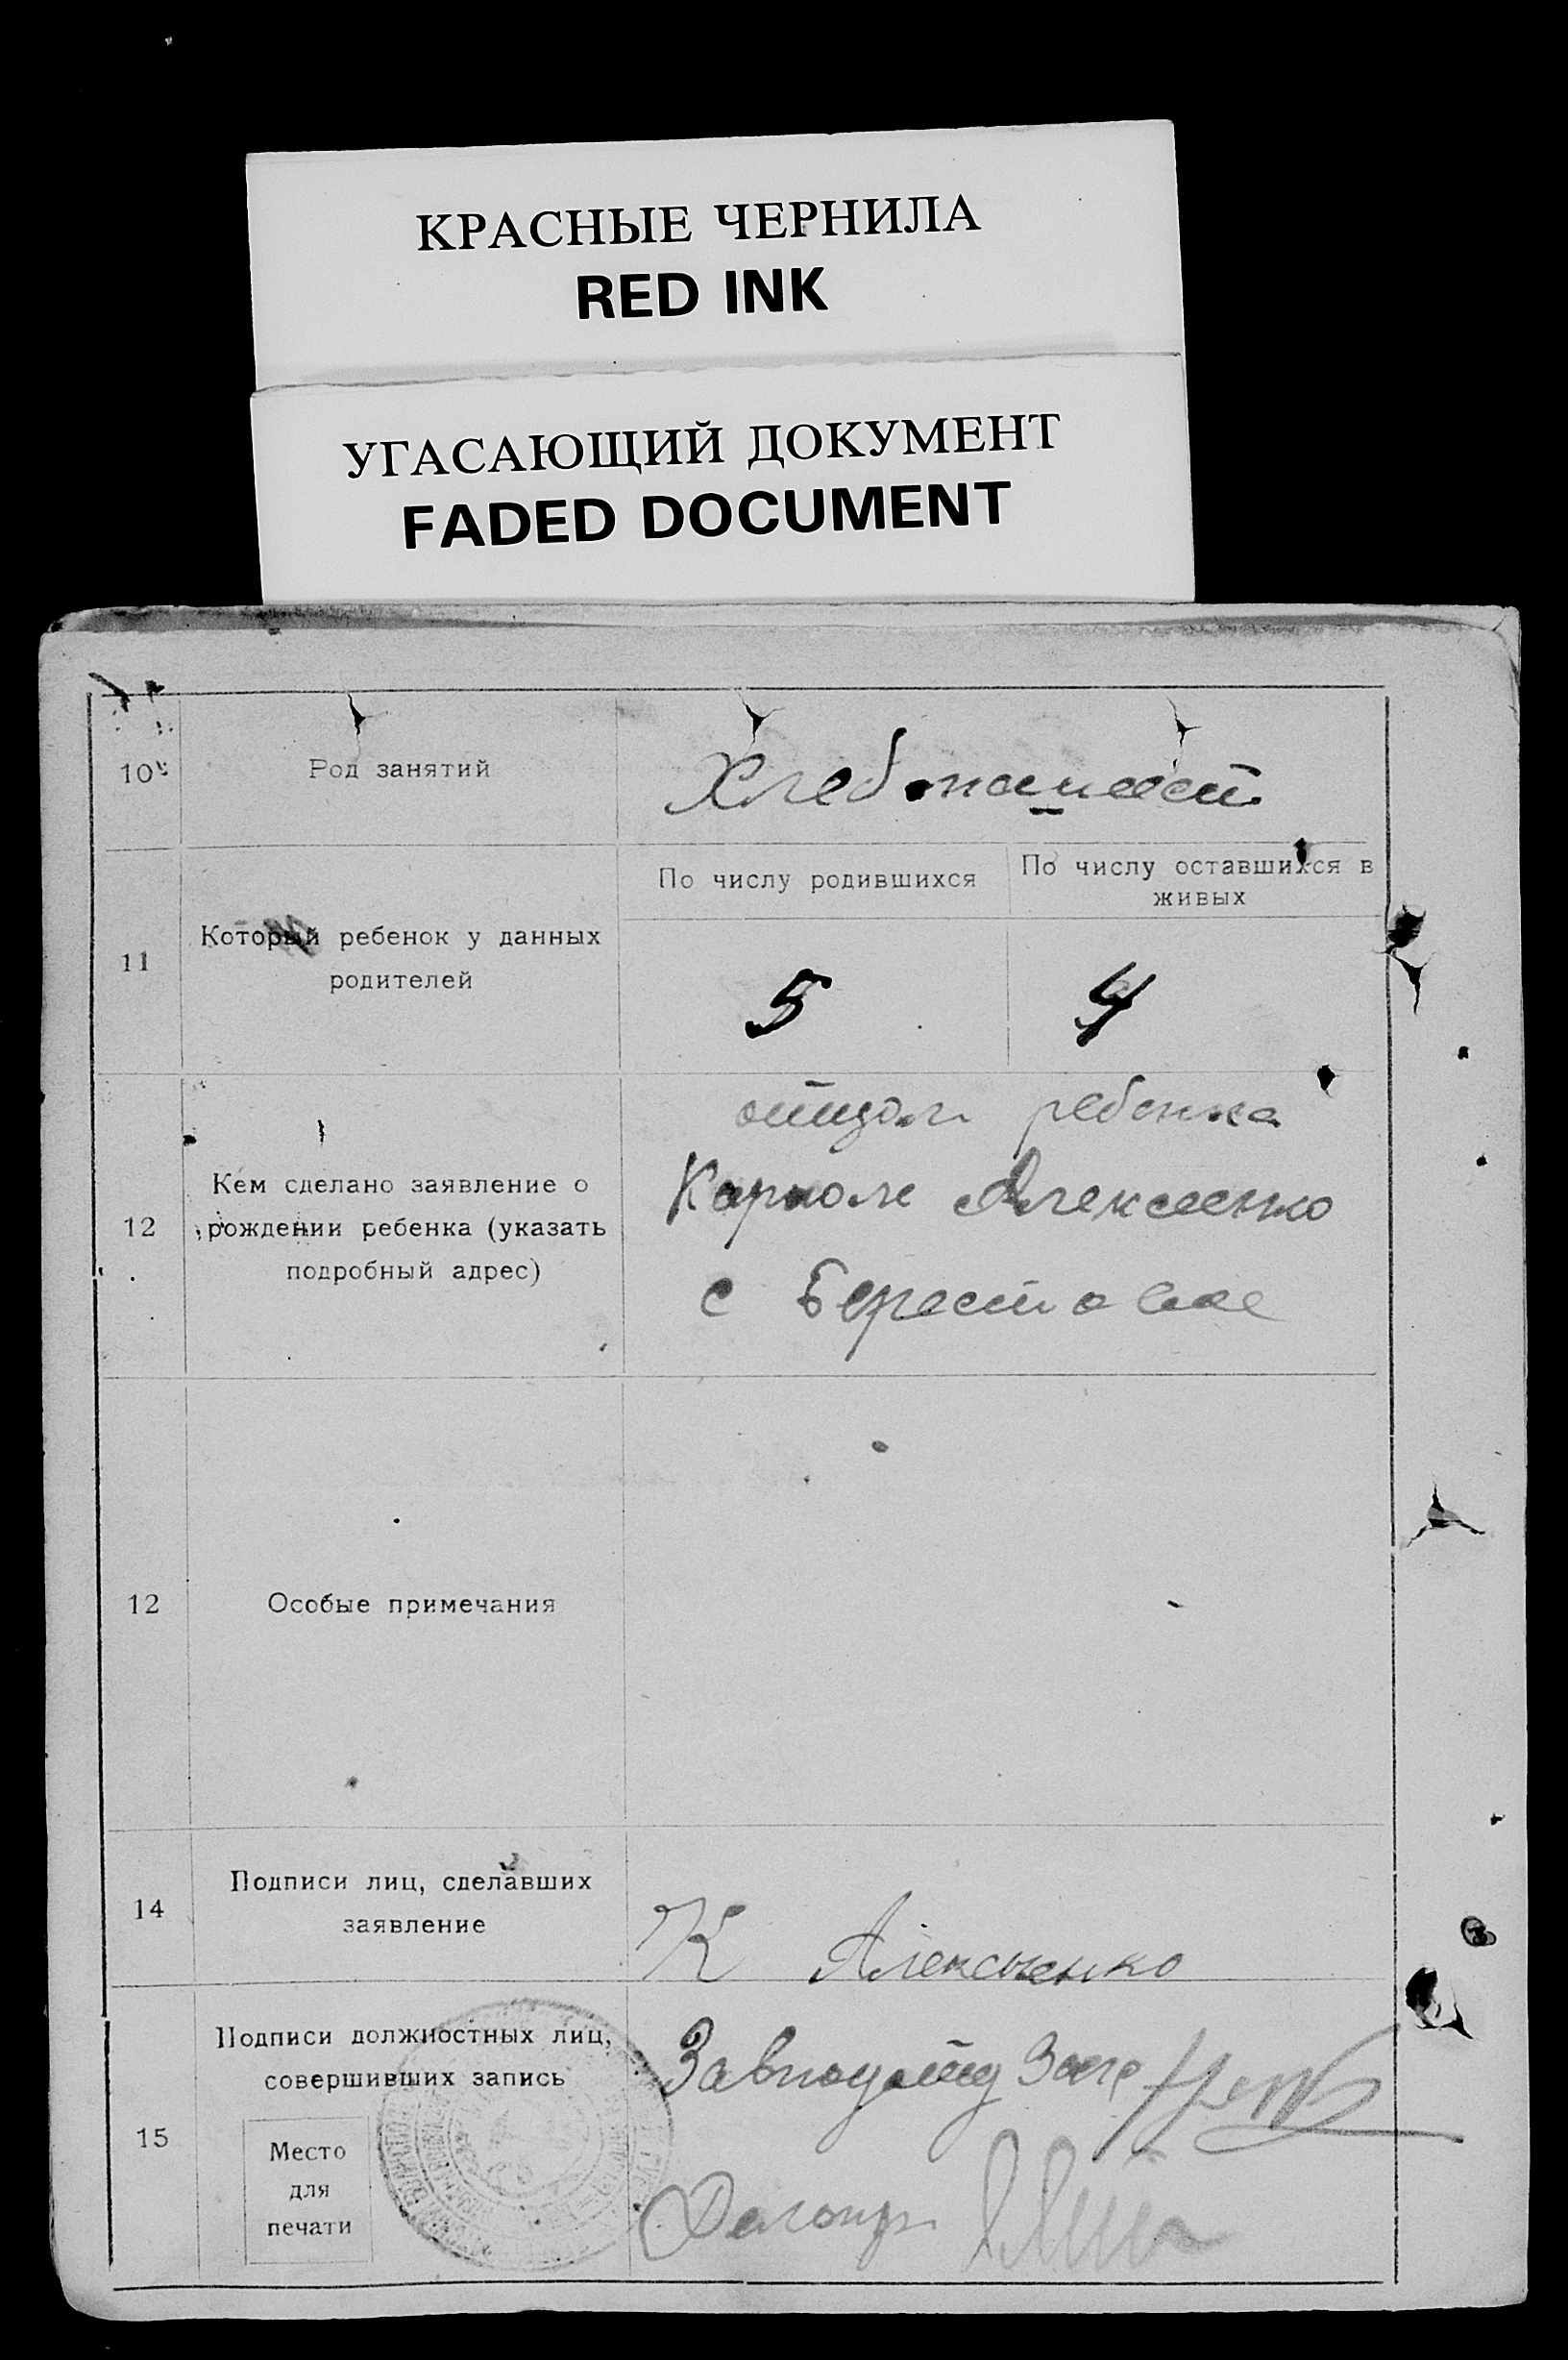 КРАСНЫЕ ЧЕРНИЛА
RED INK
УГАСАЮЩИЙ ДОКУМЕНТ
FADED DOCUMENT
10
Род занятий
Хлебопашест
11
Который ребенок у данных
родителей
По числу родившихся
По числу оставшихся в
живых
5
4
12
Кем сделано заявление о
рождении ребенка (указать
подробный адрес)
отцом ребенка
Карпом Алексеенко
с Берестовое
12
Особые примечания
14
Подписи лиц, сделавших
заявление
К Алексеенко
15
Подписи должностных лиц,
совершивших запись
Место
для
печати
Делопр